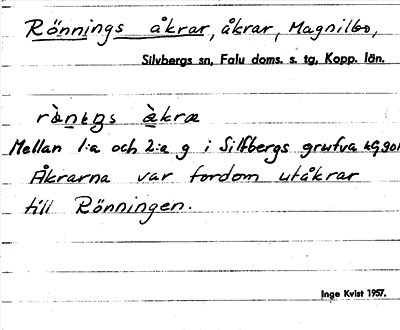 Rönnings åkrar, åkrar, Magnilbo,
Silvbergs sn, Falu doms. s. tg, Kopp. län.
Mellan 1:a och 2:a g i Silfbergs grufva
Åkrarna var fordom utåkrar
till Rönningen.
Inge Kvist 1957.